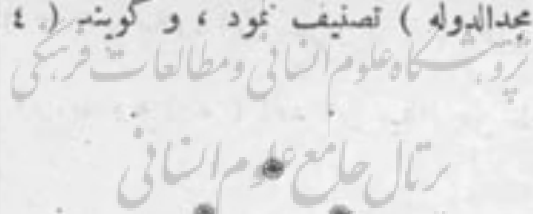 مجدالدوله ) تصنیف نمود ، و گویند ( ٤
پژوهشگاه علوم انسانی و مطالعات فرهنگی
پرتال جامع علوم انسانی